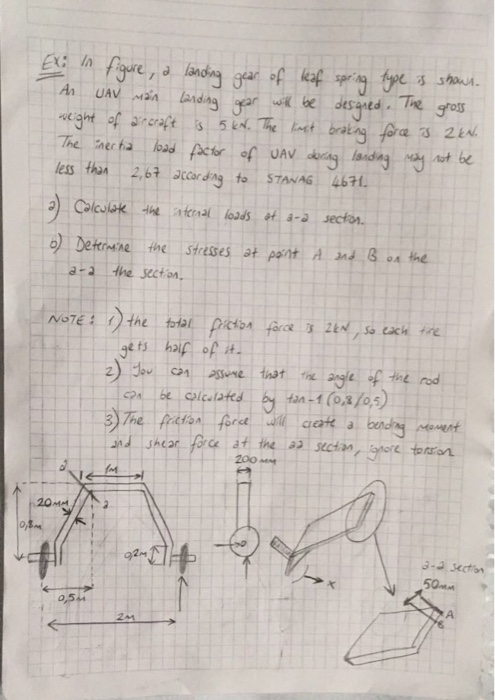 Ex: In figure, a landing gear of leaf spring type is shown.
An UAV main landing gear will be designed. The gross
weight of aircraft is 5 kN. The limit braking force is 2 kN.
The inertia load factor of UAV during landing may not be
less than 2,67 according to STANAG 4671.
a) Calculate the internal loads at a-a section.
b) Determine the stresses at point A and B on the
a-a the section.
NOTE: 1) the total friction force is 2kN, so each tire
gets half of it.
2) You can assume that the angle of the rod
can be calculated by tan-1 (0,8/0,5)
3) The friction force will create a bending moment
and shear force at the aa section, ignore torsion
200 mm
a
1M
20MM
a
0,8M
0,2M
0,5M
2M
x
a-a section
50mm
A
B